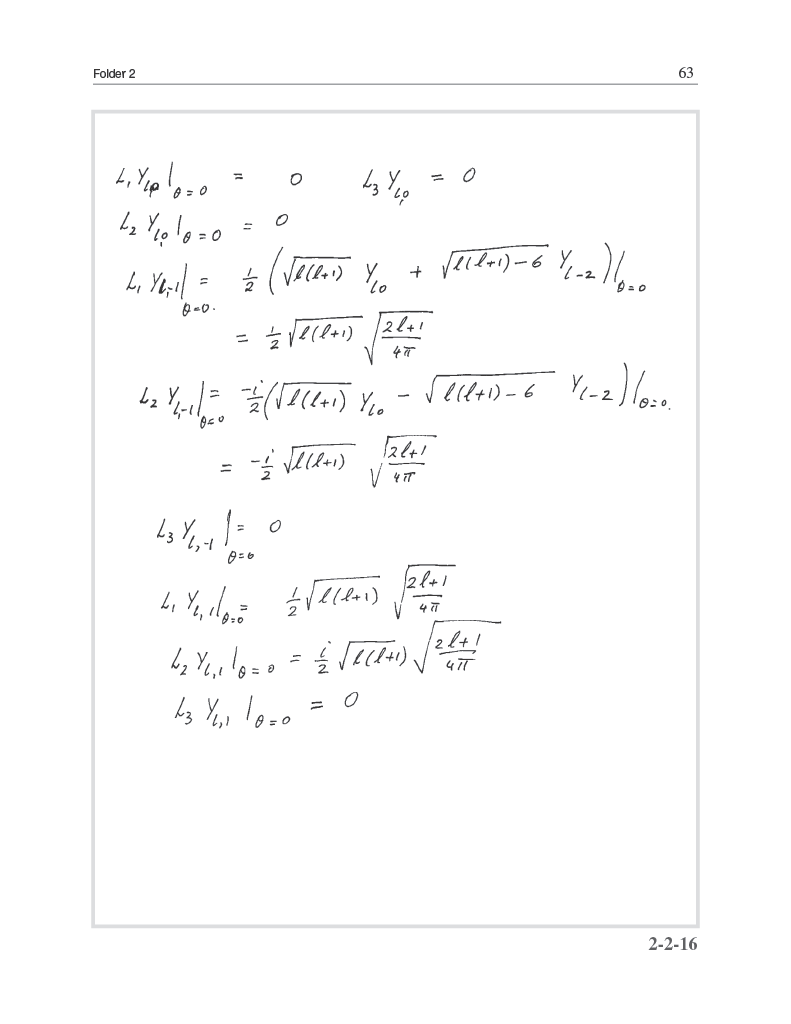 Folder 2 63
L₁ Y_{l0} |_{θ=0} = 0 L₃ Y_{l0} = 0
L₂ Y_{l,0} |_{θ=0} = 0
L₁ Y_{l,-1} |_{θ=0.} = ½ ( √(l(l+1)) Y_{l0} + √(l(l+1)-6) Y_{l-2} ) |_{θ=0}
= ½ √(l(l+1)) √((2l+1)/(4π))
L₂ Y_{l,-1} |_{θ=0} = -i/2 ( √(l(l+1)) Y_{l0} - √(l(l+1)-6) Y_{l-2} ) |_{θ=0.}
= -i/2 √(l(l+1)) √((2l+1)/(4π))
L₃ Y_{l,-1} |_{θ=0} = 0
L₁ Y_{l,1} |_{θ=0} = ½ √(l(l+1)) √((2l+1)/(4π))
L₂ Y_{l,1} |_{θ=0} = i/2 √(l(l+1)) √((2l+1)/(4π))
L₃ Y_{l,1} |_{θ=0} = 0
2-2-16